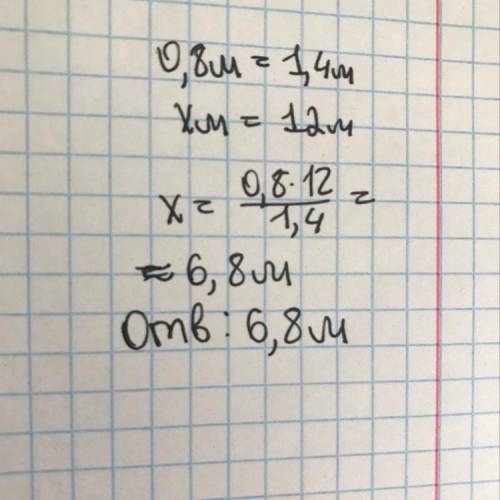 0,8м = 1,4м
xм = 12м
x = 0,8·12/1,4 =
≈ 6,8м
Отв: 6,8м